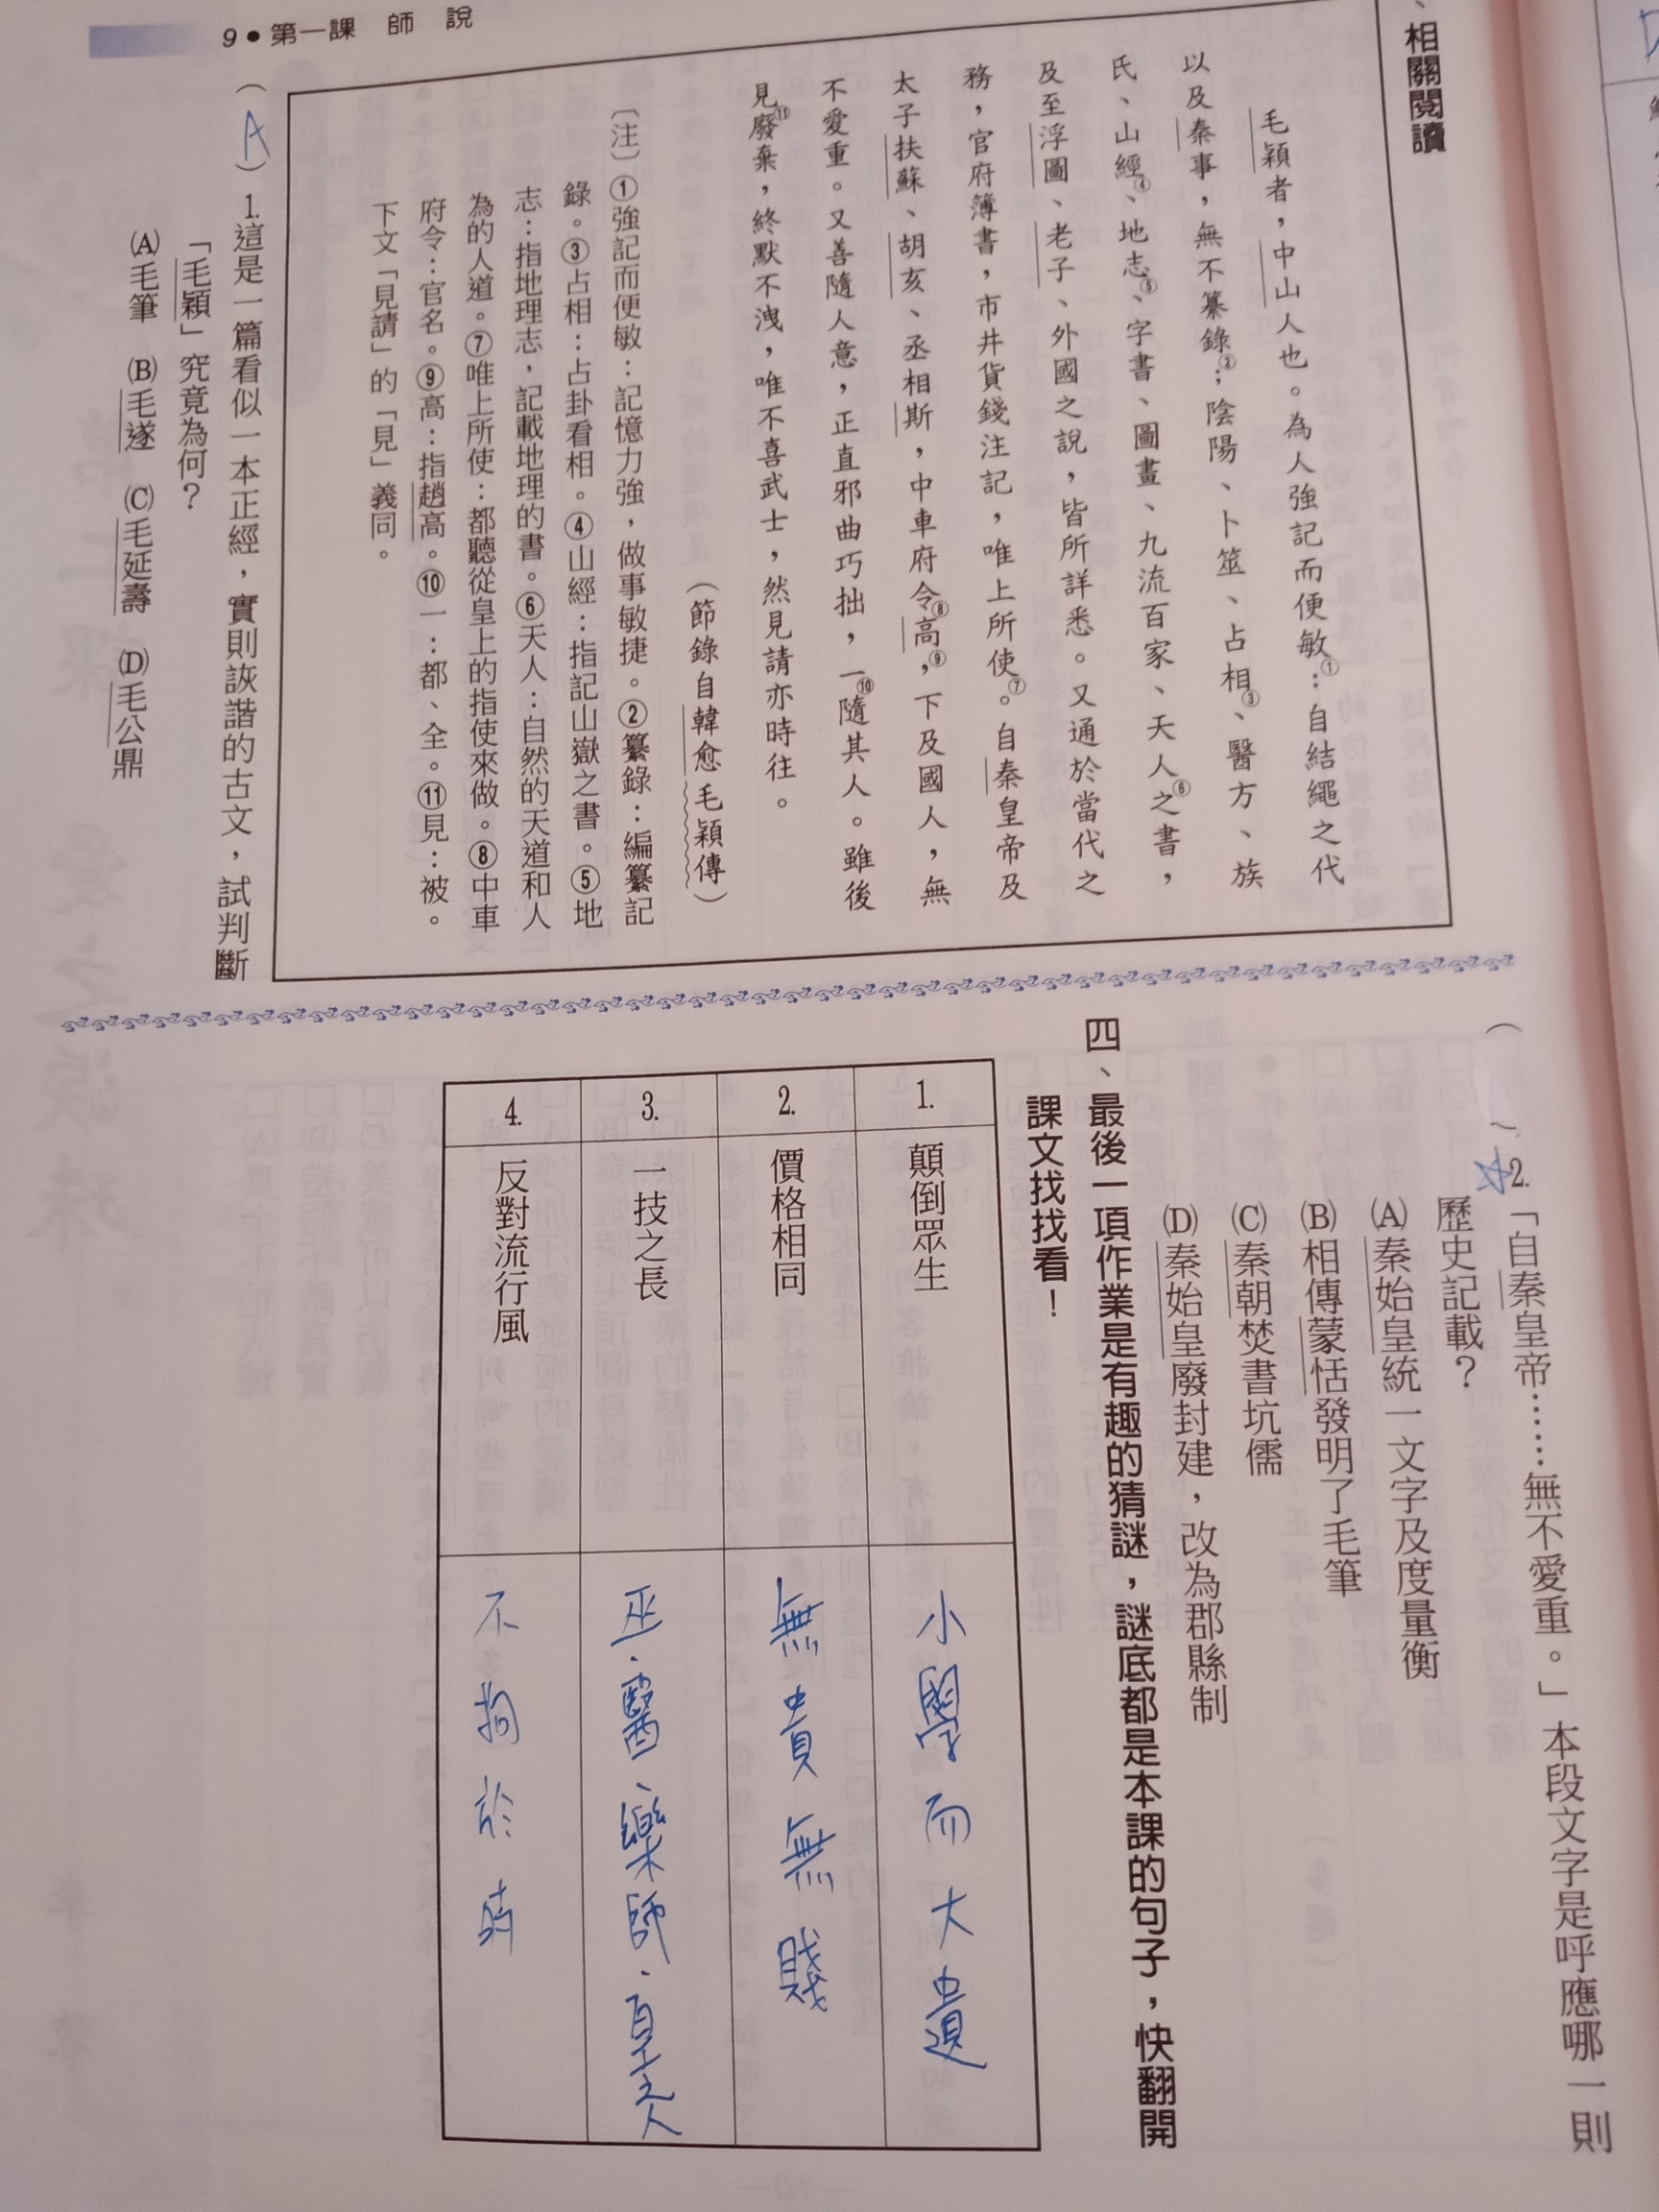 9●第一課　師　說
、相關閱讀
毛穎者，中山人也。為人強記而便敏①：自結繩之代
以及秦事，無不纂錄②；陰陽、卜筮、占相③、醫方、族
氏、山經④、地志⑤、字書、圖畫、九流百家、天人⑥之書，
及至浮圖、老子、外國之說，皆所詳悉。又通於當代之
務，官府簿書，市井貨錢注記，唯上所使⑦。自秦皇帝及
太子扶蘇、胡亥、丞相斯，中車府令⑧高⑨，下及國人，無
不愛重。又善隨人意，正直邪曲巧拙，一⑩隨其人。雖後
見⑪廢棄，終默不洩，唯不喜武士，然見請亦時往。
（節錄自韓愈毛穎傳）
〔注〕①強記而便敏：記憶力強，做事敏捷。②纂錄：編纂記
錄。③占相：占卦看相。④山經：指記山嶽之書。⑤地
志：指地理志，記載地理的書。⑥天人：自然的天道和人
為的人道。⑦唯上所使：都聽從皇上的指使來做。⑧中車
府令：官名。⑨高：指趙高。⑩一：都、全。⑪見：被。
下文「見請」的「見」義同。
（A）1.這是一篇看似一本正經，實則詼諧的古文，試判斷
「毛穎」究竟為何？
(A)毛筆　(B)毛遂　(C)毛延壽　(D)毛公鼎
（　）☆2.「自秦皇帝……無不愛重。」本段文字是呼應哪一則
歷史記載？
(A)秦始皇統一文字及度量衡
(B)相傳蒙恬發明了毛筆
(C)秦朝焚書坑儒
(D)秦始皇廢封建，改為郡縣制
四、最後一項作業是有趣的猜謎，謎底都是本課的句子，快翻開
課文找找看！
1.　顛倒眾生　小學而大遺
2.　價格相同　無貴無賤
3.　一技之長　巫、醫、樂師、百工之人
4.　反對流行風　不拘於時